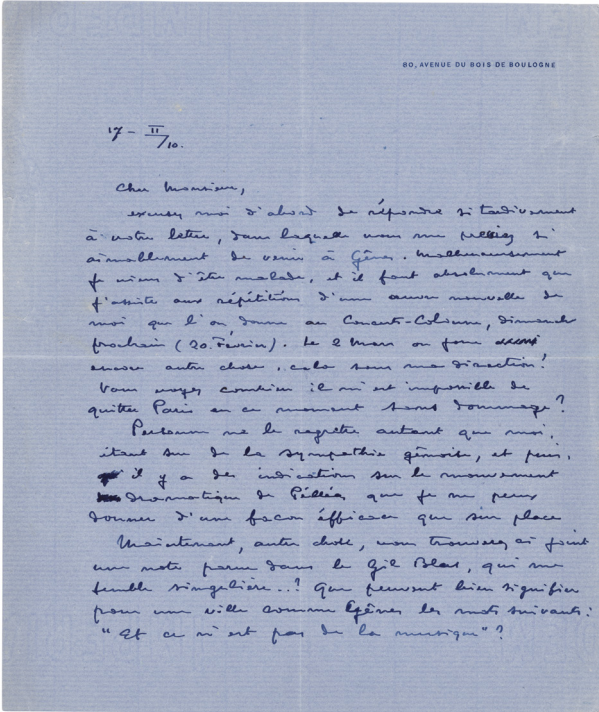 80, AVENUE DU BOIS DE BOULOGNE
17 - II/10.
Cher Monsieur,
excusez moi d'abord de répondre si tardivement
à votre lettre, dans laquelle vous me priez si
aimablement de venir à Gênes. Malheureusement
je viens d'être malade, et il faut absolument que
j'assiste aux répétitions d'une œuvre nouvelle de
moi que l'on donne au Concerts-Colonne, dimanche
prochain (20. Février). Le 2 Mars on joue
encore autre chose, cela sous ma direction!
Vous voyez combien il m'est impossible de
quitter Paris en ce moment sans dommage?
Personne ne le regrette autant que moi,
étant sûr de la sympathie génoise, et puis,
il y a des indications sur le mouvement
dramatique de Pélléas que je ne peux
donner d'une façon éfficace que sur place
Maintenant, autre chose, vous trouverez ci joint
une note parue dans le Gil Blas, qui me
semble singulière..? Que peuvent bien signifier
pour une ville comme Gênes les mots suivants:
"Et ce n'est pas de la musique"?